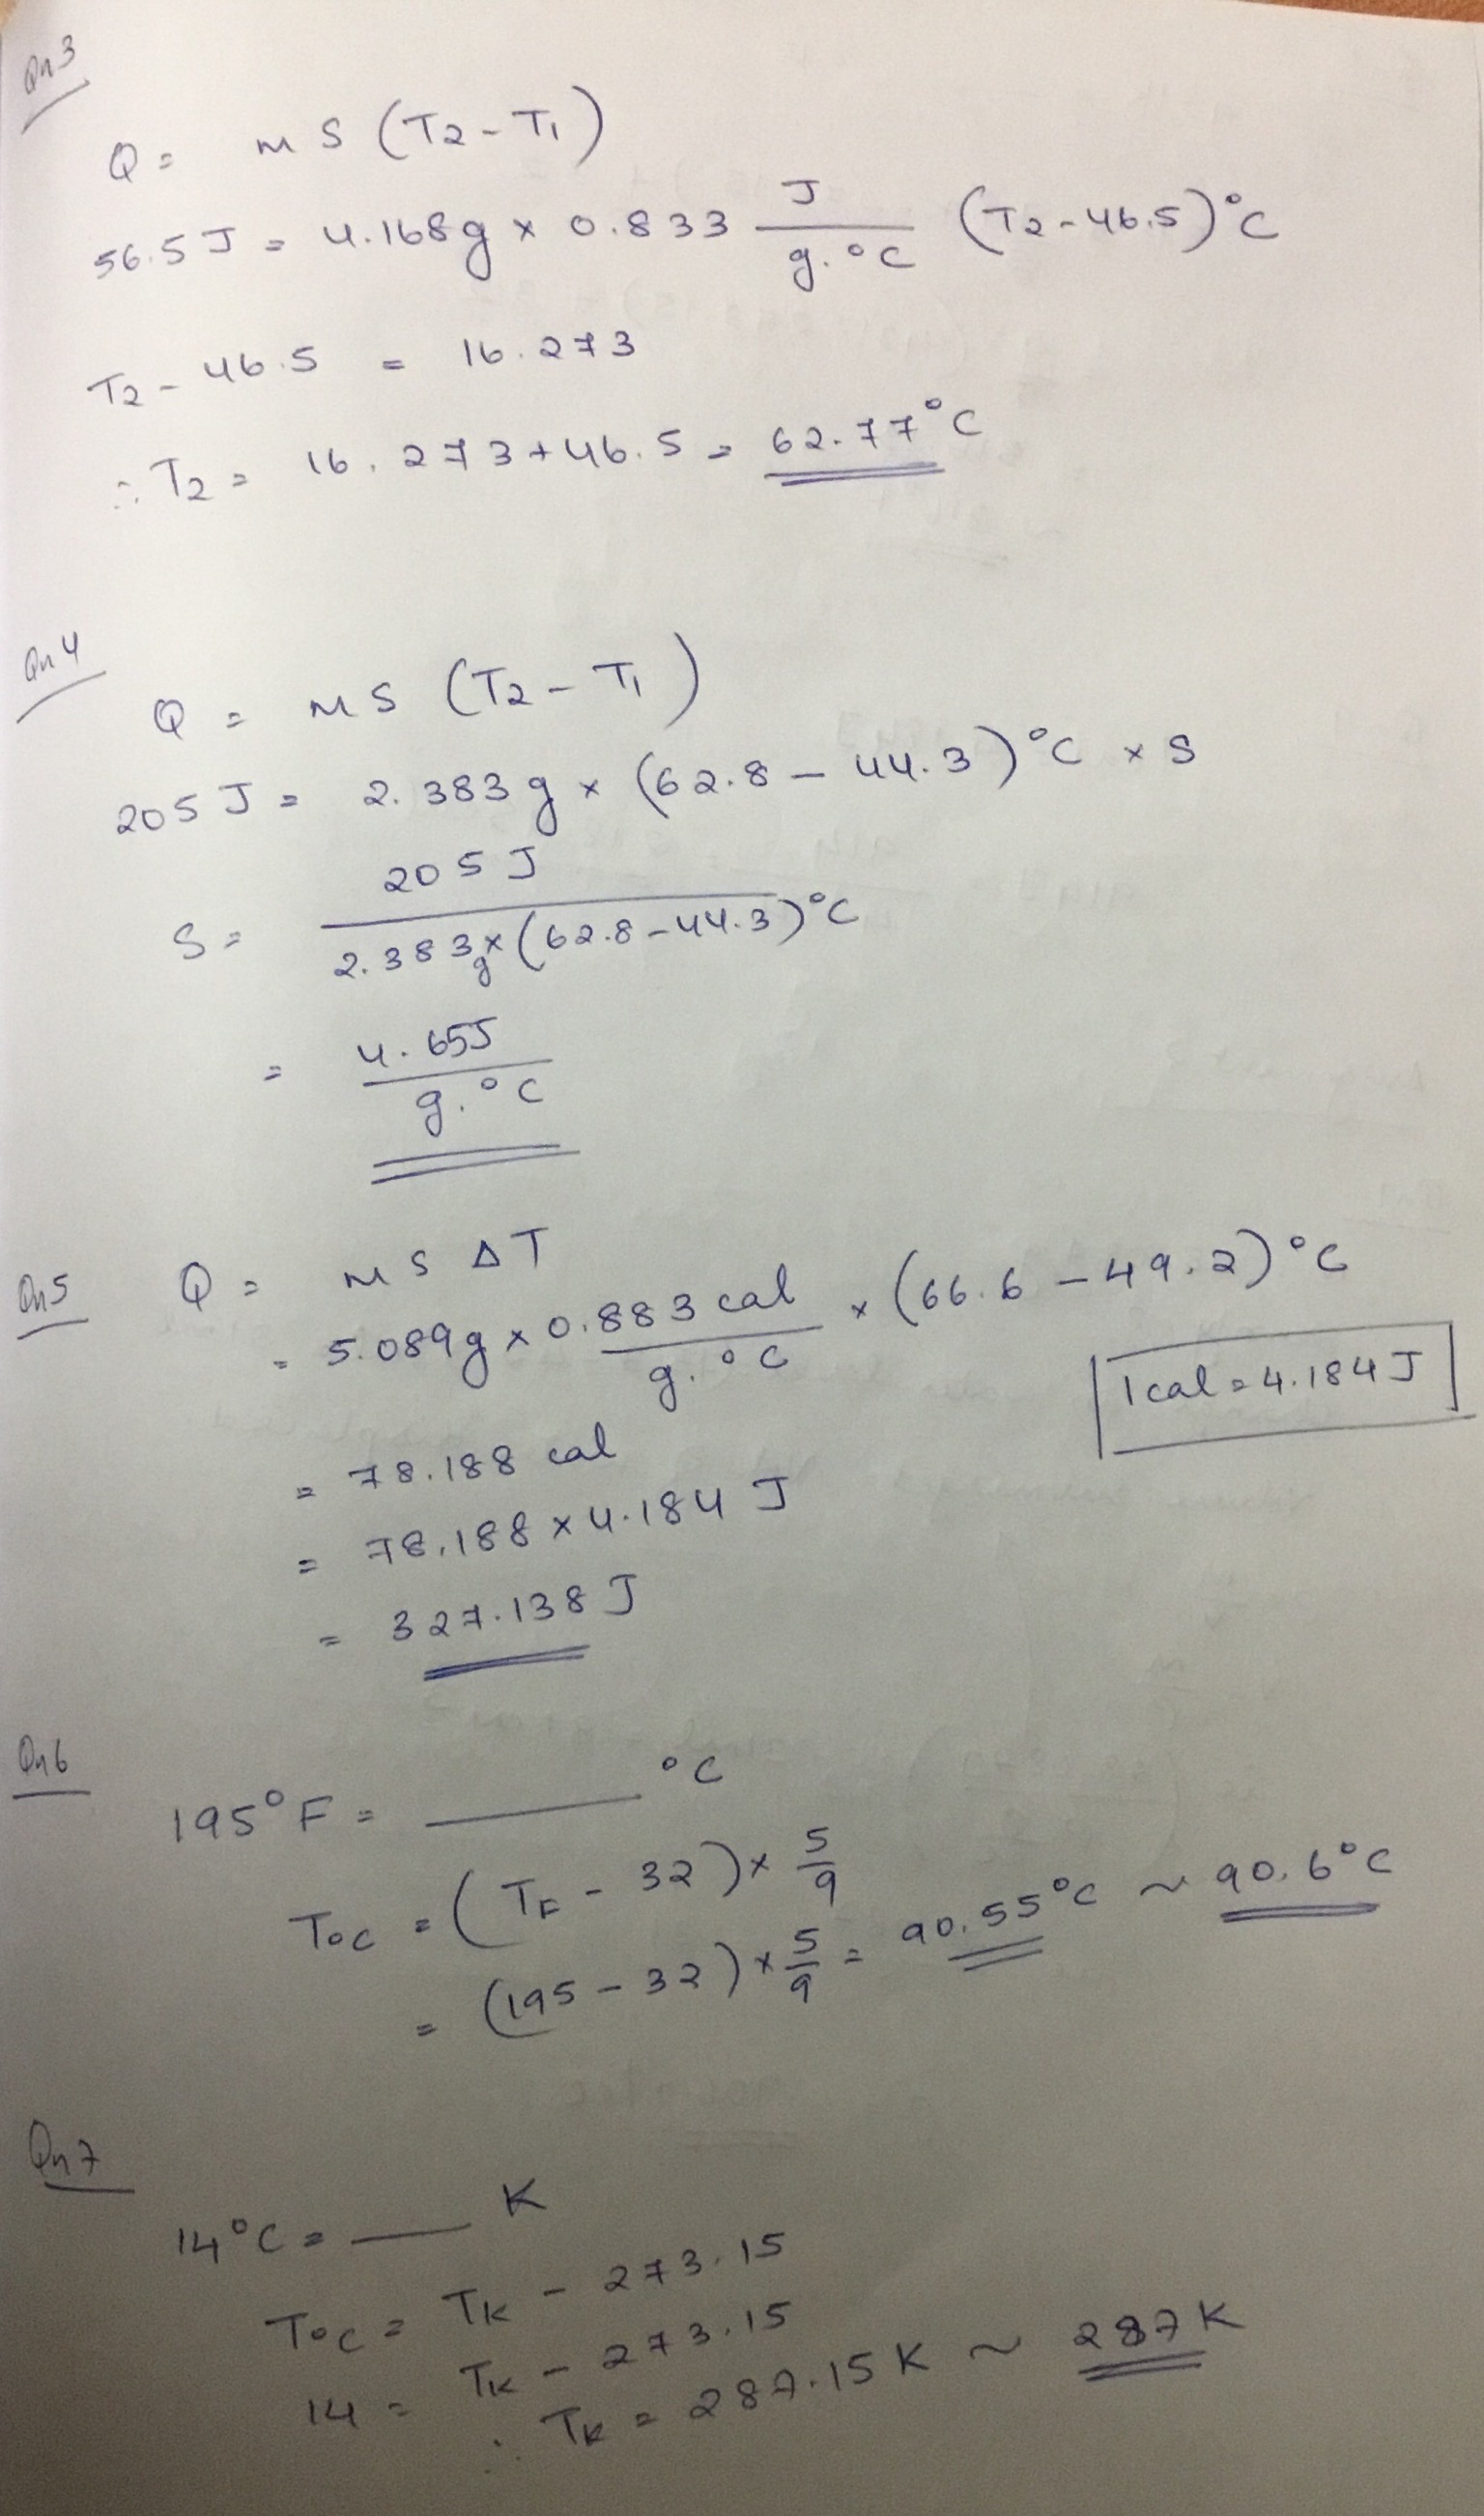 Qn 3
Q = MS (T2 - T1)
56.5 J = 4.168g × 0.833 J/g.°C (T2 - 46.5)°C
T2 - 46.5 = 16.273
∴ T2 = 16.273 + 46.5 = 62.77°C
Qn 4
Q = MS (T2 - T1)
205 J = 2.383 g × (62.8 - 44.3)°C × S
S = 205 J / 2.383g × (62.8 - 44.3)°C
= 4.65J / g.°C
Qn5 Q = MS ΔT
= 5.089g × 0.883 cal / g.°C × (66.6 - 49.2)°C
1cal = 4.184 J
= 78.188 cal
= 78.188 × 4.184 J
= 327.138 J
Qn6
195°F = ____ °C
T°C = (TF - 32) × 5/9
= (195 - 32) × 5/9 = 90.55°C ~ 90.6°C
Qn7
14°C = ___ K
T°C = TK - 273.15
14 = TK - 273.15
∴ TK = 287.15 K ~ 287 K